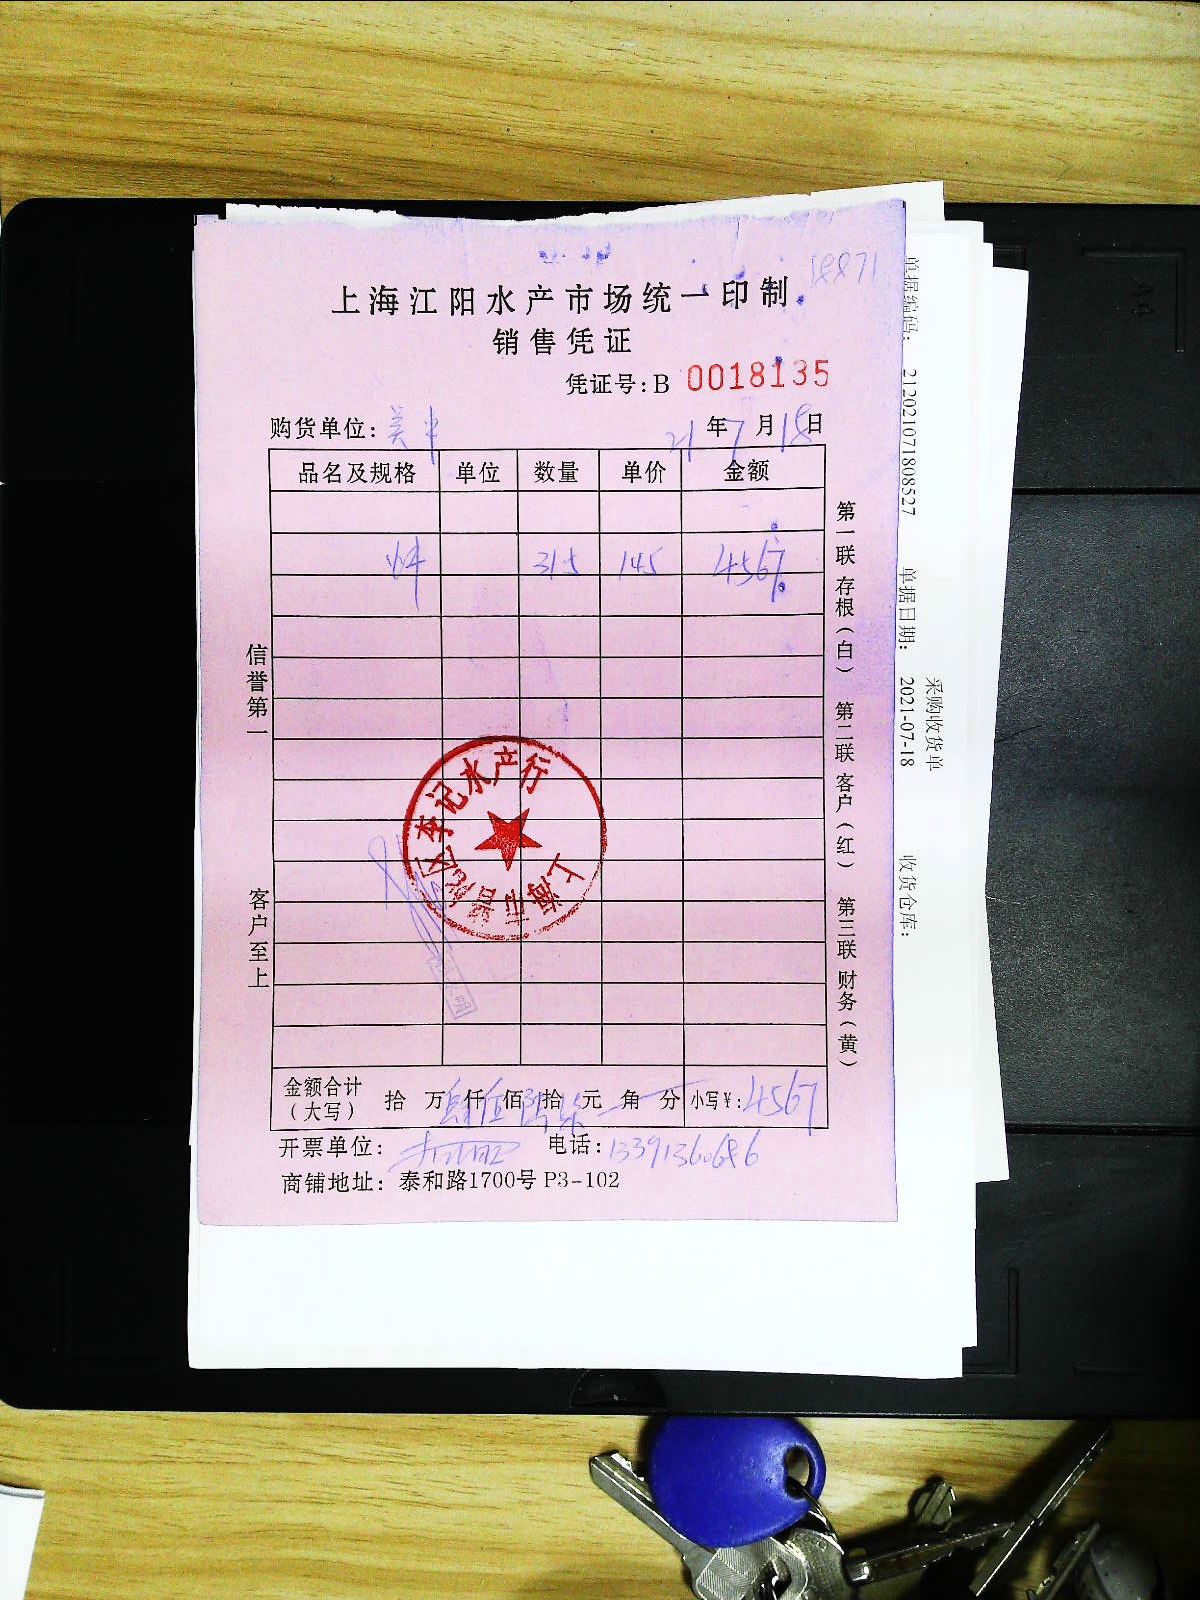 18871
上海江阳水产市场统一印制
销售凭证
凭证号:B 0018135
购货单位:
21年7月18日
品名及规格 单位 数量 单价 金额
315 145 4567
信誉第一
客户至上
第一联 存根(白) 第二联 客户(红) 第三联 财务(黄)
上海市宝山区李记水产行
金额合计(大写) 拾 万 肆仟 伍佰 陆拾 柒元 角 分 小写¥:4567
开票单位: 电话:13391360686
商铺地址: 泰和路1700号 P3-102
采购收货单
单据编码: 21202107180852​7 单据日期: 2021-07-18 收货仓库:
A4